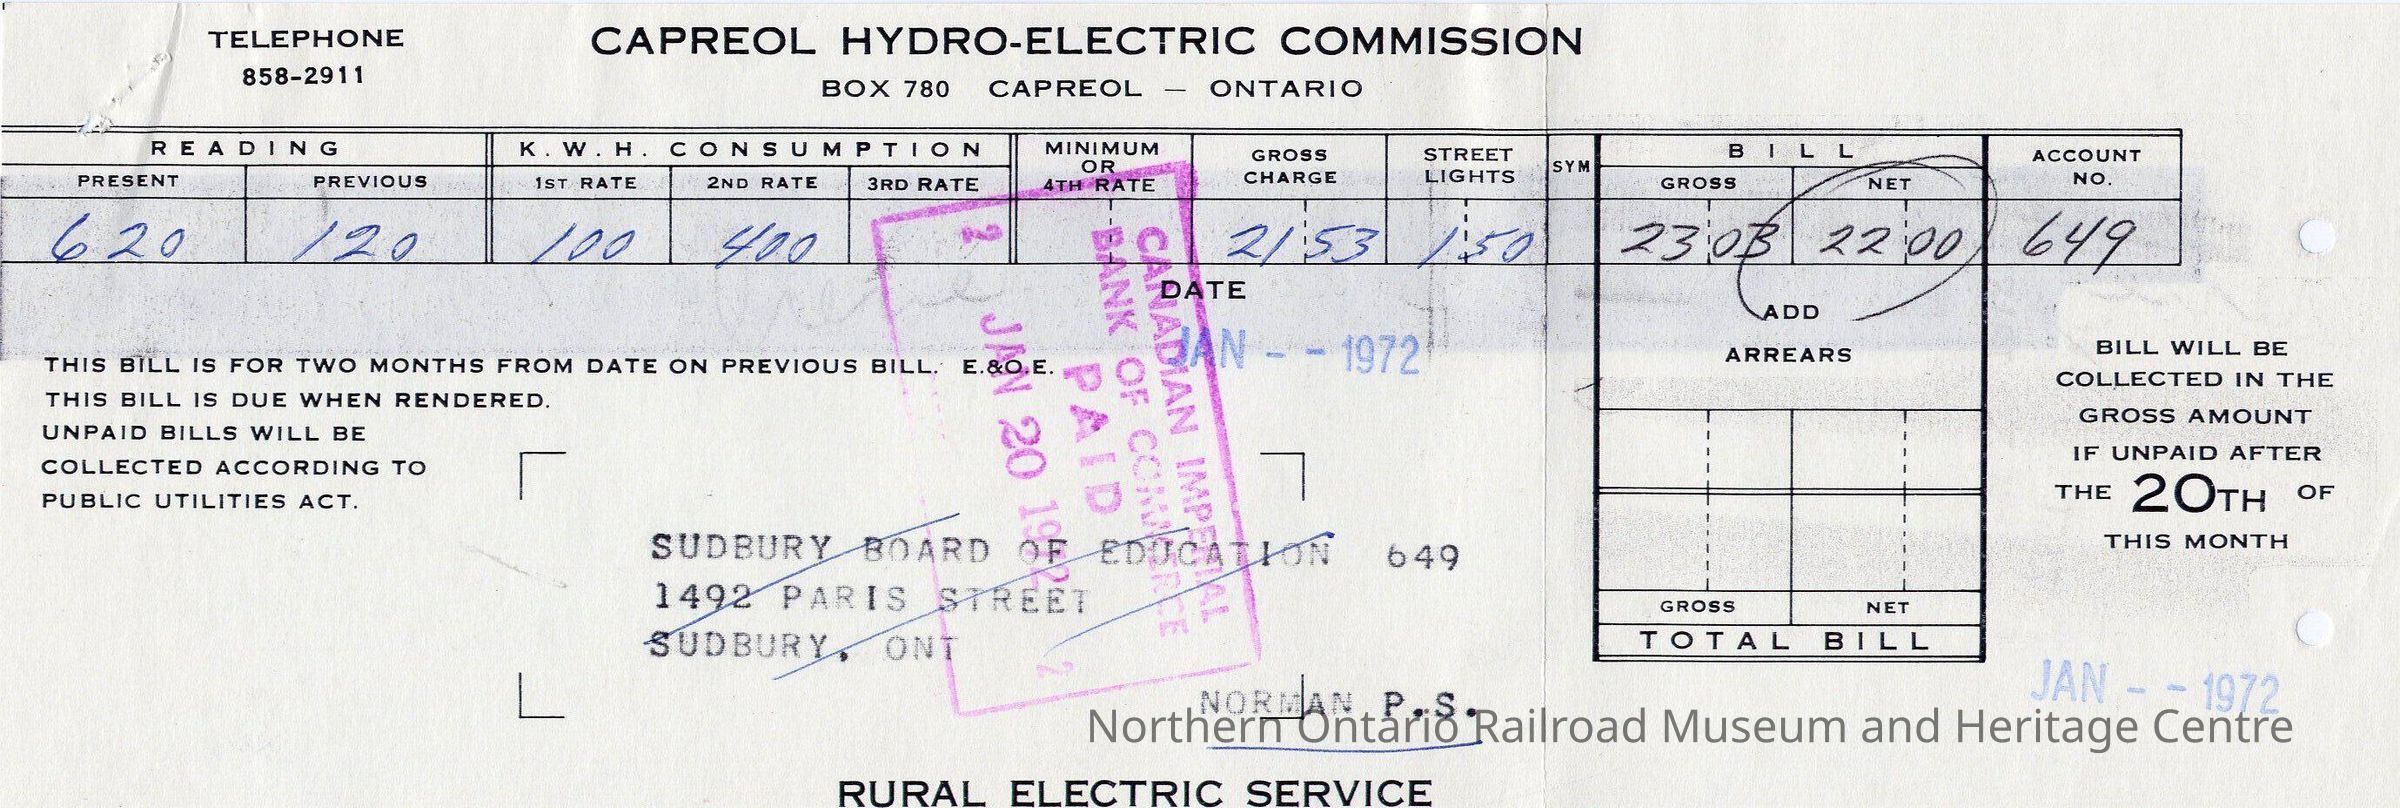 TELEPHONE
858-2911
CAPREOL HYDRO-ELECTRIC COMMISSION
BOX 780 CAPREOL — ONTARIO
READING
PRESENT PREVIOUS
K.W.H. CONSUMPTION
1ST RATE 2ND RATE 3RD RATE
MINIMUM
OR
4TH RATE
GROSS
CHARGE
STREET
LIGHTS
SYM
BILL
GROSS NET
ACCOUNT
NO.
620 120 100 400 21 53 1 50 23 03 22 00 649
DATE
JAN - - 1972
ADD
ARREARS
GROSS NET
TOTAL BILL
THIS BILL IS FOR TWO MONTHS FROM DATE ON PREVIOUS BILL. E.&O.E.
THIS BILL IS DUE WHEN RENDERED.
UNPAID BILLS WILL BE
COLLECTED ACCORDING TO
PUBLIC UTILITIES ACT.
BILL WILL BE
COLLECTED IN THE
GROSS AMOUNT
IF UNPAID AFTER
THE 20TH OF
THIS MONTH
CANADIAN IMPERIAL
BANK OF COMMERCE
PAID
2 JAN 20 1972 2
SUDBURY BOARD OF EDUCATION 649
1492 PARIS STREET
SUDBURY, ONT
NORMAN P.S.
JAN - - 1972
Northern Ontario Railroad Museum and Heritage Centre
RURAL ELECTRIC SERVICE